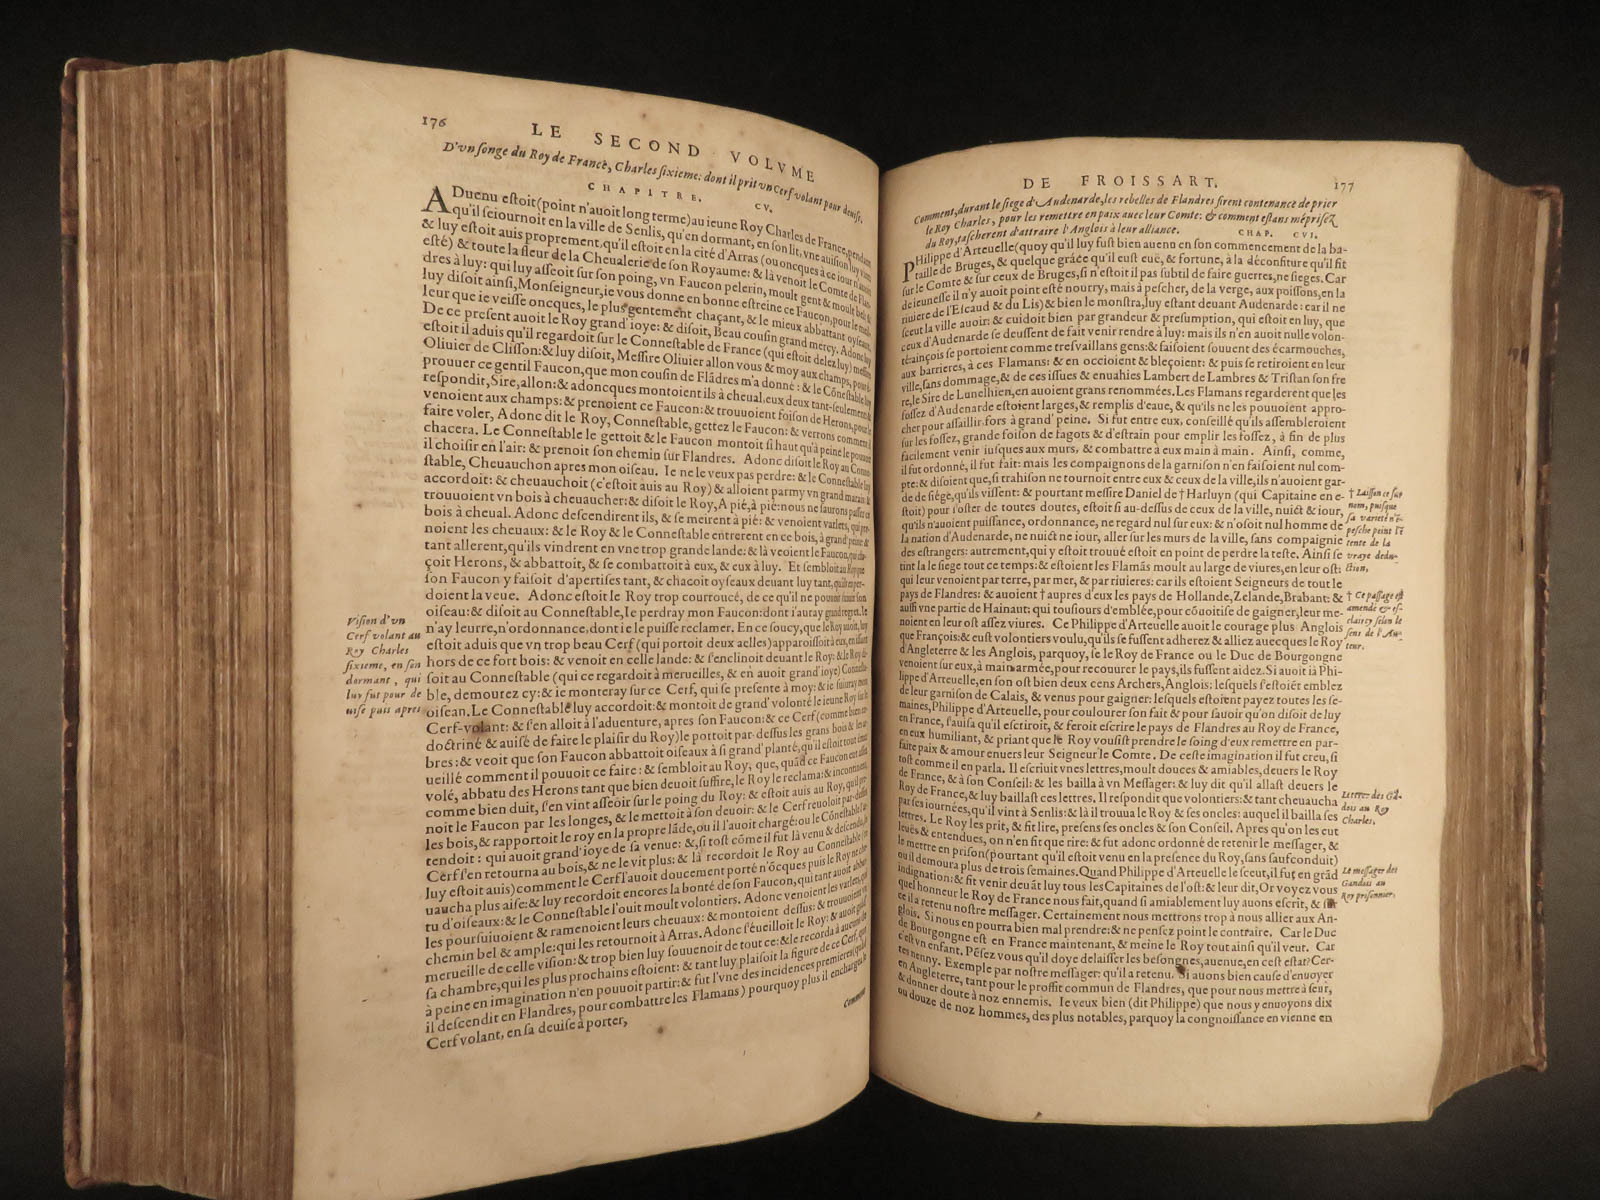 176
LE SECOND VOLVME
D'vn ſonge du Roy de France, Charles ſixieme: dont il prit vn Cerf-volant pour deuiſe.
CHAPITRE. CV.
ADuenu eſtoit (point n'auoit long terme) au ieune Roy Charles de France, pendant
qu'il ſeiournoit en la ville de Senlis, qu'en dormant, en ſon lit, vne auiſion luy vint
& luy eſtoit auis proprement, qu'il eſtoit en la cité d'Arras (ou oncques à ce iour n'auoit
eſté) & toute la fleur de la Cheualerie de ſon Royaume: & là venoit le Comte de Flan-
dres à luy: qui luy aſſeoit ſur ſon poing, vn Faucon pelerin, moult gent & moult bel &
luy diſoit ainſi, Monſeigneur, ie vous donne en bonne eſtreine ce Faucon, pour le meil-
leur que ie veiſſe oncques, le plus gentement chaçant, & le mieux abbattant oyſeaux,
De ce preſent auoit le Roy grand' ioye: & diſoit, Beau couſin grand mercy. Adonc luy
eſtoit il aduis qu'il regardoit ſur le Conneſtable de France (qui eſtoit delez luy) meſſire
Oliuier de Cliſſon: & luy diſoit, Meſſire Oliuier allon vous & moy aux champs, pour é-
prouuer ce gentil Faucon, que mon couſin de Flādres m'a donné: & le Cōneſtable luy
reſpondit, Sire, allon: & adoncques montoient ils à cheual, eux deux tant-ſeulement: &
venoient aux champs: & prenoient ce Faucon: & trouuoient foiſon de Herons, pour le
faire voler, Adonc dit le Roy, Conneſtable, gettez le Faucon: & verrons comment il
chacera. Le Conneſtable le gettoit & le Faucon montoit ſi haut qu'à peine le pouuoit
il choiſir en l'air: & prenoit ſon chemin ſur Flandres. Adonc diſoit le Roy au Conne-
ſtable, Cheuauchon apres mon oiſeau. Ie ne le veux pas perdre: & le Conneſtable luy
accordoit: & cheuauchoit (c'eſtoit auis au Roy) & alloient parmy vn grand marais: &
trouuoient vn bois à cheuaucher: & diſoit le Roy, A pié, à pié: nous ne ſaurons paſſer ce
bois à cheual. Adonc deſcendirent ils, & ſe meirent à pié: & venoient varlets, qui pre-
noient les cheuaux: & le Roy & le Conneſtable entrerent en ce bois, à grand' peine: &
tant allerent, qu'ils vindrent en vne trop grande lande: & là veoient le Faucon, qui cha-
çoit Herons, & abbattoit, & ſe combattoit à eux, & eux à luy. Et ſembloit au Roy que
ſon Faucon y faiſoit d'apertiſes tant, & chacoit oyſeaux deuant luy tant, qu'ils en per-
doient la veue. Adonc eſtoit le Roy trop courroucé, de ce qu'il ne pouuoit ſuiuir ſon
oiſeau: & diſoit au Conneſtable, Ie perdray mon Faucon: dont i'auray grand regret. Ie
n'ay leurre, n'ordonnance, dont ie le puiſſe reclamer. En ce ſoucy, que le Roy auoit, luy
eſtoit aduis que vn trop beau Cerf (qui portoit deux aelles) apparoiſſoit à eux, en iſſant
hors de ce fort bois: & venoit en celle lande: & ſ'enclinoit deuant le Roy: & le Roy di-
ſoit au Conneſtable (qui ce regardoit à merueilles, & en auoit grand' ioye) Conneſta-
ble, demourez cy: & ie monteray ſur ce Cerf, qui ſe preſente à moy: & ie ſuiuray mon
oiſeau. Le Conneſtable luy accordoit: & montoit de grand' volonté le ieune Roy ſur le
Cerf-volant: & ſ'en alloit à l'aduenture, apres ſon Faucon: & ce Cerf (comme bien en-
doctriné & auiſé de faire le plaiſir du Roy) le portoit par-deſſus les grans bois & les ar-
bres: & veoit que ſon Faucon abbattoit oiſeaux à ſi grand' planté, qu'il eſtoit tout émer-
ueillé comment il pouuoit ce faire: & ſembloit au Roy, que, quād ce Faucon eut aſſez
volé, abbatu des Herons tant que bien deuoit ſuffire, le Roy le reclama: & incontinent,
comme bien duit, ſ'en vint aſſeoir ſur le poing du Roy: & eſtoit auis au Roy, qu'il pre-
noit le Faucon par les longes, & le mettoit à ſon deuoir: & le Cerf reuoloit par-deſſus
les bois, & rapportoit le roy en la propre lāde, ou il l'auoit chargé: ou le Cōneſtable l'at-
tendoit: qui auoit grand' ioye de ſa venue: &, ſi toſt cōme il fut là venu & deſcendu, le
Cerf ſ'en retourna au bois, & ne le vit plus: & là recordoit le Roy au Conneſtable (ce
luy eſtoit auis) comment le Cerf l'auoit doucement porté n'ōcques puis le Roy ne che-
uaucha plus aiſe: & luy recordoit encores la bonté de ſon Faucon, qui tant auoit abbat-
tu d'oiſeaux: & le Conneſtable l'ouit moult volontiers. Adonc venoient les varlets, qui
les pourſuiuoient & ramenoient leurs cheuaux: & montoient deſſus: & trouuoient vn
chemin bel & ample: qui les retournoit à Arras. Adonc ſ'éueilloit le Roy: & auoit grand'
merueille de celle viſion: & trop bien luy ſouuenoit de tout ce: & le recorda à aucuns de
ſa chambre, qui les plus prochains eſtoient: & tant luy plaiſoit la figure de ce Cerf, que
à peine en imagination n'en pouuoit partir: & fut l'vne des incidences premieres (quād
il deſcendit en Flandres, pour combattre les Flamans) pourquoy plus il enchargea le
Cerf volant, en ſa deuiſe à porter,
Comment
Viſion d'vn
Cerf volant au
Roy Charles
ſixieme, en ſon
dormant, qui
luy fut pour de
uiſe puis apres
DE FROISSART.
177
Comment, durant le ſiege d'Audenarde, les rebelles de Flandres firent contenance de prier
le Roy Charles, pour les remettre en paix auec leur Comte: & comment eſtans mépriſez
du Roy, taſcherent d'attraire l'Anglois à leur alliance. CHAP. CVI.
PHilippe d'Arteuelle (quoy qu'il luy fuſt bien auenu en ſon commencement de la ba-
taille de Bruges, & quelque grāce qu'il euſt eue, & fortune, à la déconfiture qu'il fit
ſur le Comte & ſur ceux de Bruges, ſi n'eſtoit il pas ſubtil de faire guerres, ne ſieges. Car
de ieuneſſe il n'y auoit point eſté nourry, mais à peſcher, de la verge, aux poiſſons, en la
riuiere de l'Eſcaud & du Lis) & bien le monſtra, luy eſtant deuant Audenarde: car il ne
ſceut la ville auoir: & cuidoit bien par grandeur & preſumption, qui eſtoit en luy, que
ceux d'Audenarde ſe deuſſent de fait venir rendre à luy: mais ils n'en auoit nulle volon-
té: ainçois ſe portoient comme treſvaillans gens: & faiſoient ſouuent des écarmouches,
aux barrieres, à ces Flamans: & en occioient & bleçoient: & puis ſe retiroient en leur
ville, ſans dommage, & de ces iſſues & enuahies Lambert de Lambres & Triſtan ſon fre
re, le Sire de Lunelhien, en auoient grans renommées. Les Flamans regarderent que les
foſſez d'Audenarde eſtoient larges, & remplis d'eaue, & qu'ils ne les pouuoient appro-
cher pour aſſaillir, fors à grand' peine. Si fut entre eux, conſeillé qu'ils aſſembleroient
ſur les foſſez, grande foiſon de fagots & d'eſtrain pour emplir les foſſez, à fin de plus
facilement venir iuſques aux murs, & combattre à eux main à main. Ainſi, comme,
il fut ordonné, il fut fait: mais les compaignons de la garniſon n'en faiſoient nul com-
pte: & diſoient que, ſi trahiſon ne tournoit entre eux & ceux de la ville, ils n'auoient gar-
de de ſiége, qu'ils viſſent: & pourtant meſſire Daniel de † Harluyn (qui Capitaine en e-
ſtoit) pour l'oſter de toutes doutes, eſtoit ſi au-deſſus de ceux de la ville, nuict & iour,
qu'ils n'auoient puiſſance, ordonnance, ne regard nul ſur eux: & n'oſoit nul homme de
la nation d'Audenarde, ne nuict ne iour, aller ſur les murs de la ville, ſans compaignie
des eſtrangers: autrement, qui y eſtoit trouué eſtoit en point de perdre la teſte. Ainſi ſe
tint la le ſiege tout ce temps: & eſtoient les Flamās moult au large de viures, en leur oſt:
qui leur venoient par terre, par mer, & par riuieres: car ils eſtoient Seigneurs de tout le
pays de Flandres: & auoient † aupres d'eux les pays de Hollande, Zelande, Brabant: &
auſſi vne partie de Hainaut: qui touſiours d'emblée, pour cōuoitiſe de gaigner, leur me-
noient en leur oſt aſſez viures. Ce Philippe d'Arteuelle auoit le courage plus Anglois
que François: & euſt volontiers voulu, qu'ils ſe fuſſent adherez & alliez auecques le Roy
d'Angleterre & les Anglois, parquoy, ſe le Roy de France ou le Duc de Bourgongne
venoient ſur eux, à main armée, pour recouurer le pays, ils fuſſent aidez. Si auoit ià Phi-
lippe d'Arteuelle, en ſon oſt bien deux cens Archers, Anglois: leſquels ſ'eſtoiēt emblez
de leur garniſon de Calais, & venus pour gaigner: leſquels eſtoiēt payez toutes les ſe-
maines, Philippe d'Arteuelle, pour coulourer ſon fait & pour ſauoir qu'on diſoit de luy
en France, ſ'auiſa qu'il eſcriroit, & feroit eſcrire le pays de Flandres au Roy de France,
en eux humiliant, & priant que le Roy vouſiſt prendre le ſoing d'eux remettre en par-
faite paix & amour enuers leur Seigneur le Comte. De ceſte imagination il fut creu, ſi
toſt comme il en parla. Il eſcriuit vnes lettres, moult douces & amiables, deuers le Roy
de France, & à ſon Conſeil: & les bailla à vn Meſſager: & luy dit qu'il allaſt deuers le
Roy de France, & luy baillaſt ces lettres. Il reſpondit que volontiers: & tant cheuaucha
par ſes iournées, qu'il vint à Senlis: & là il trouua le Roy & ſes oncles: auquel il bailla ſes
lettres. Le Roy les prit, & fit lire, preſens ſes oncles & ſon Conſeil. Apres qu'on les eut
leues & entendues, on n'en fit que rire: & fut adonc ordonné de retenir le meſſager, &
le mettre en priſon (pourtant qu'il eſtoit venu en la preſence du Roy, ſans ſaufconduit)
ou il demoura plus de trois ſemaines. Quand Philippe d'Arteuelle le ſceut, il fut en grād
indignation: & fit venir deuāt luy tous les Capitaines de l'oſt: & leur dit, Or voyez vous
quel honneur le Roy de France nous fait, quand ſi amiablement luy auons eſcrit, & ſur
ce il a retenu noſtre meſſager. Certainement nous mettrons trop à nous allier aux An-
glois. Si nous en pourra bien mal prendre: & ne penſez point le contraire. Car le Duc
de Bourgongne eſt en France maintenant, & meine le Roy tout ainſi qu'il veut. Car
c'eſt vn enfant. Pēſez vous qu'il doye delaiſſer les beſongnes, auenue, en ceſt eſtat? Cer-
tes nenny. Exemple par noſtre meſſager: qu'il a retenu. Si auons bien cauſe d'enuoyer
en Angleterre, tant pour le proffit commun de Flandres, que pour nous mettre à ſeur,
& donner doute à noz ennemis. Ie veux bien (dit Philippe) que nous y enuoyons dix
ou douze de noz hommes, des plus notables, parquoy la congnoiſſance en vienne en
† Laiſſon ce ſur
nom, puiſque
ſa varieté n'é-
peſche point l'i
tente de la
vraye dedu-
ction,
† Ce paſſage eſt
amendé & eſ-
claircy ſelon le
ſens de l'Au-
teur.
Lettres des Gā-
dois au Roy
Charles,
Le meſſager des
Gandois au
Roy priſonnier.